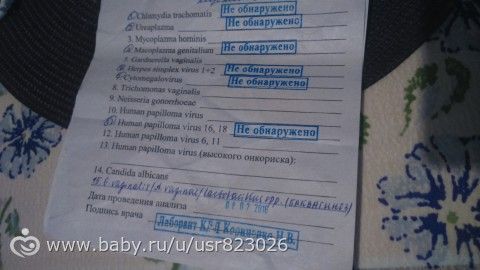 Chlamydia trachomatis Не обнаружено
Ureaplasma Не обнаружено
3. Mycoplazma hominis
Macoplazma genitalium Не обнаружено
5. Gardnerella vaginalis
Herpes simplex virus 1+2 Не обнаружено
Cytomegalovirus Не обнаружено
8. Trichomonas vaginalis
9. Neisseria gonorrhoeae
10. Human papilloma virus
Human papilloma virus 16, 18 Не обнаружено
12. Human papilloma virus 6, 11
13. Human papilloma virus (высокого онкориска):
14. Candida albicans
Дата проведения анализа
Подпись врача Лаборант КДЛ
www.baby.ru/u/usr823026